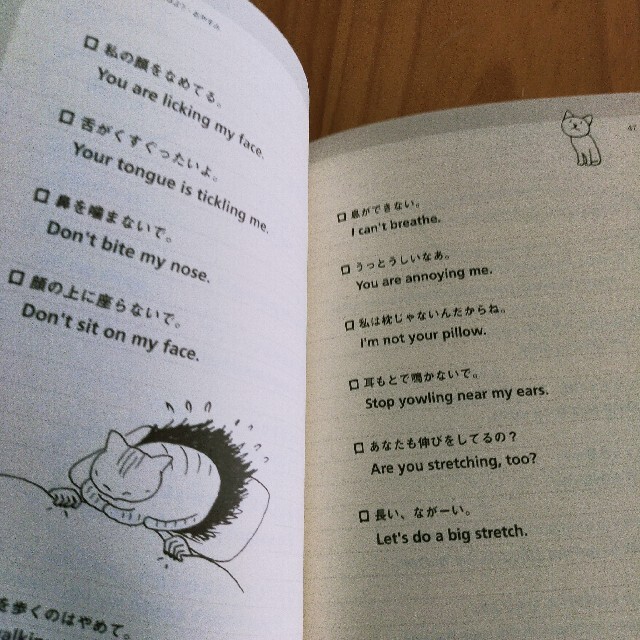 おやすみ
私の顔をなめてる。
You are licking my face.
舌がくすぐったいよ。
Your tongue is tickling me.
鼻を噛まないで。
Don't bite my nose.
顔の上に座らないで。
Don't sit on my face.
を歩くのはやめて。
47
息ができない。
I can't breathe.
うっとうしいなあ。
You are annoying me.
私は枕じゃないんだからね。
I'm not your pillow.
耳もとで鳴かないで。
Stop yowling near my ears.
あなたも伸びをしてるの?
Are you stretching, too?
長い、ながーい。
Let's do a big stretch.